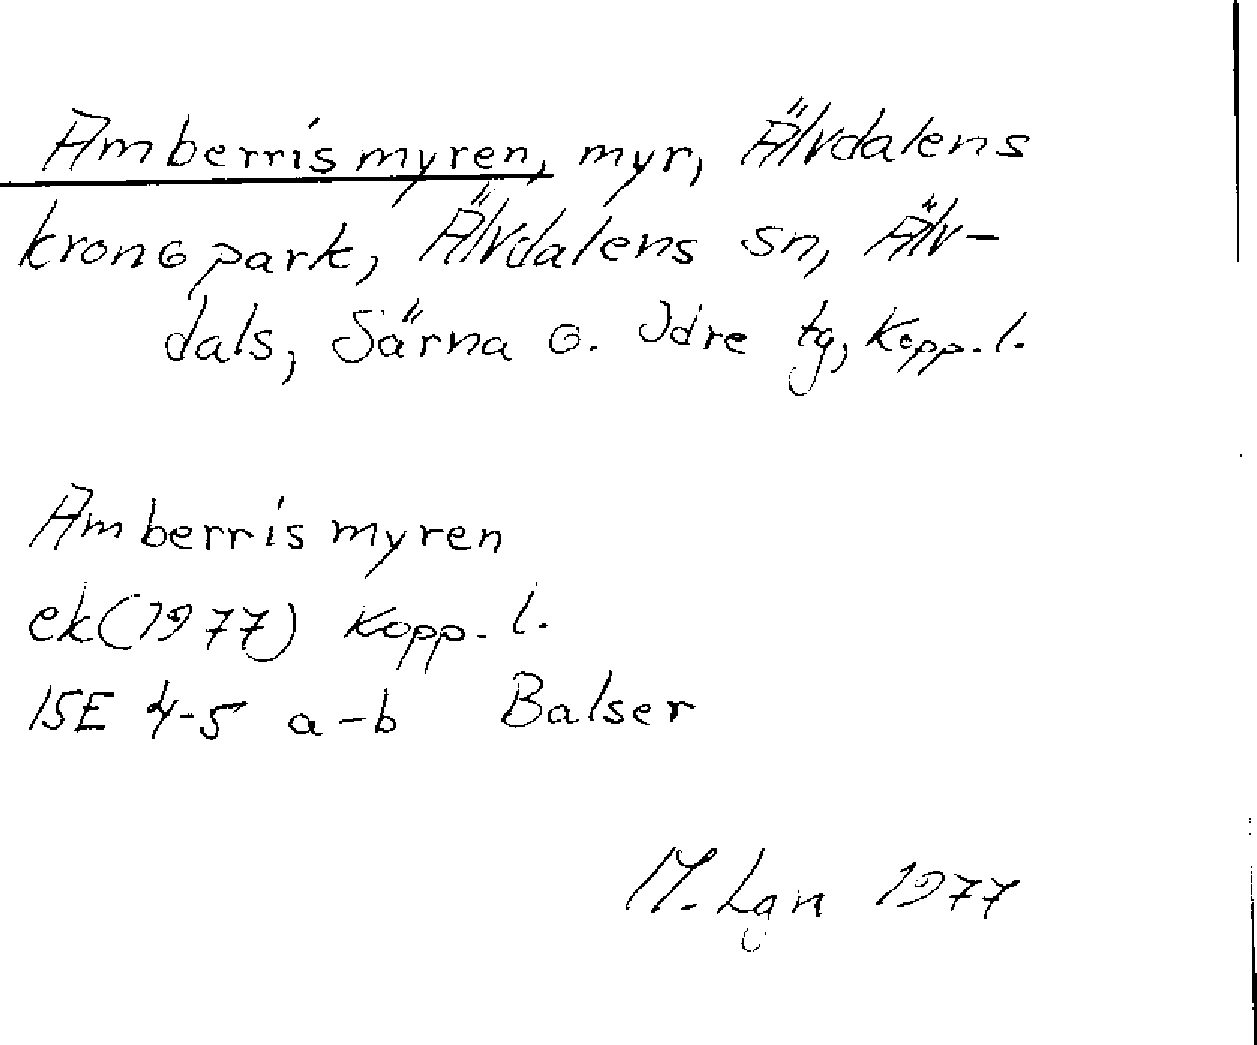 Amberrismyren, myr, Älvdalens
kronopark, Älvdalens sn, Älv-
dals, Särna o. Idre tg, Kopp. l.
Amberrismyren
ek (1977) Kopp. l.
15E 4-5 a-b Balser
M. Lgn 1977